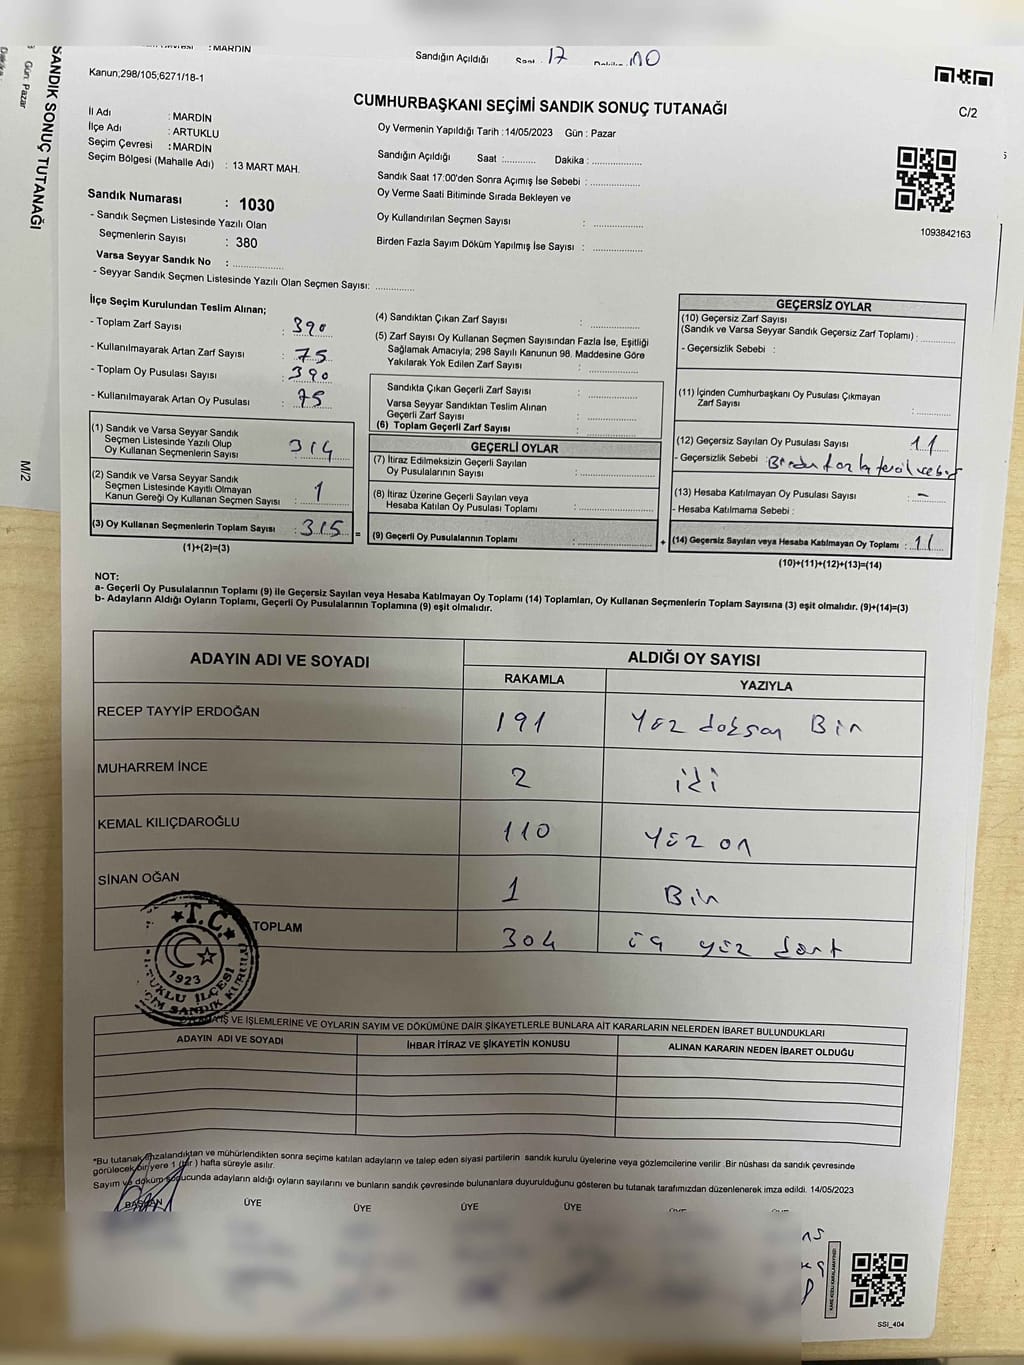 : MARDİN
Sandığın Açıldığı Saat . 17 Dakika... 00
Kanun,298/105,6271/18-1
SANDIK SONUÇ TUTANAĞI
Gün: Pazar
M/2
CUMHURBAŞKANI SEÇİMİ SANDIK SONUÇ TUTANAĞI
C/2
İl Adı : MARDİN
İlçe Adı : ARTUKLU
Seçim Çevresi : MARDİN
Seçim Bölgesi (Mahalle Adı) : 13 MART MAH.
Oy Vermenin Yapıldığı Tarih :14/05/2023 Gün : Pazar
Sandığın Açıldığı Saat :........... Dakika : ...................
Sandık Saat 17:00'den Sonra Açımış İse Sebebi : ...................
Oy Verme Saati Bitiminde Sırada Bekleyen ve
Oy Kullandırılan Seçmen Sayısı : ...................
Birden Fazla Sayım Döküm Yapılmış İse Sayısı : ...................
1093842163
Sandık Numarası : 1030
- Sandık Seçmen Listesinde Yazılı Olan
Seçmenlerin Sayısı : 380
Varsa Seyyar Sandık No : ...................
- Seyyar Sandık Seçmen Listesinde Yazılı Olan Seçmen Sayısı: ..............
İlçe Seçim Kurulundan Teslim Alınan;
- Toplam Zarf Sayısı : 390
- Kullanılmayarak Artan Zarf Sayısı : 75
- Toplam Oy Pusulası Sayısı : 390
- Kullanılmayarak Artan Oy Pusulası : 75
(1) Sandık ve Varsa Seyyar Sandık
Seçmen Listesinde Yazılı Olup
Oy Kullanan Seçmenlerin Sayısı : 314
(2) Sandık ve Varsa Seyyar Sandık
Seçmen Listesinde Kayıtlı Olmayan
Kanun Gereği Oy Kullanan Seçmen Sayısı : 1
(3) Oy Kullanan Seçmenlerin Toplam Sayısı : 315 =
(1)+(2)=(3)
(4) Sandıktan Çıkan Zarf Sayısı : ...................
(5) Zarf Sayısı Oy Kullanan Seçmen Sayısından Fazla İse, Eşitliği
Sağlamak Amacıyla; 298 Sayılı Kanunun 98. Maddesine Göre
Yakılarak Yok Edilen Zarf Sayısı : ...................
Sandıkta Çıkan Geçerli Zarf Sayısı : ...................
Varsa Seyyar Sandıktan Teslim Alınan
Geçerli Zarf Sayısı : ...................
(6) Toplam Geçerli Zarf Sayısı : ...................
GEÇERLİ OYLAR
(7) İtiraz Edilmeksizin Geçerli Sayılan
Oy Pusulalarının Sayısı : ...................
(8) İtiraz Üzerine Geçerli Sayılan veya
Hesaba Katılan Oy Pusulası Toplamı : ...................
(9) Geçerli Oy Pusulalarının Toplamı : ................... +
GEÇERSİZ OYLAR
(10) Geçersiz Zarf Sayısı
(Sandık ve Varsa Seyyar Sandık Geçersiz Zarf Toplamı) : ............
- Geçersizlik Sebebi :
(11) İçinden Cumhurbaşkanı Oy Pusulası Çıkmayan
Zarf Sayısı : ............
(12) Geçersiz Sayılan Oy Pusulası Sayısı : 11
- Geçersizlik Sebebi : Birden fazla tercih
(13) Hesaba Katılmayan Oy Pusulası Sayısı : -
- Hesaba Katılmama Sebebi :
(14) Geçersiz Sayılan veya Hesaba Katılmayan Oy Toplamı : 11
(10)+(11)+(12)+(13)=(14)
NOT:
a- Geçerli Oy Pusulalarının Toplamı (9) ile Geçersiz Sayılan veya Hesaba Katılmayan Oy Toplamı (14) Toplamları, Oy Kullanan Seçmenlerin Toplam Sayısına (3) eşit olmalıdır. (9)+(14)=(3)
b- Adayların Aldığı Oyların Toplamı, Geçerli Oy Pusulalarının Toplamına (9) eşit olmalıdır.
ADAYIN ADI VE SOYADI ALDIĞI OY SAYISI
RAKAMLA YAZIYLA
RECEP TAYYİP ERDOĞAN 191 Yüz doksan Bir
MUHARREM İNCE 2 iki
KEMAL KILIÇDAROĞLU 110 Yüz on
SİNAN OĞAN 1 Bir
TOPLAM 304 üç yüz dört
T.C.
1923
İLÇESİ
SANDIK KURULU
İŞ VE İŞLEMLERİNE VE OYLARIN SAYIM VE DÖKÜMÜNE DAİR ŞİKAYETLERLE BUNLARA AİT KARARLARIN NELERDEN İBARET BULUNDUKLARI
ADAYIN ADI VE SOYADI İHBAR İTİRAZ VE ŞİKAYETİN KONUSU ALINAN KARARIN NEDEN İBARET OLDUĞU
*Bu tutanak imzalandıktan ve mühürlendikten sonra seçime katılan adayların ve talep eden siyasi partilerin sandık kurulu üyelerine veya gözlemcilerine verilir .Bir nüshası da sandık çevresinde
görülecek bir yere 1 (bir ) hafta süreyle asılır.
Sayım ve döküm sonucunda adayların aldığı oyların sayılarını ve bunların sandık çevresinde bulunanlara duyurulduğunu gösteren bu tutanak tarafımızdan düzenlenerek imza edildi. 14/05/2023
BAŞKAN ÜYE ÜYE ÜYE ÜYE
SSI_404